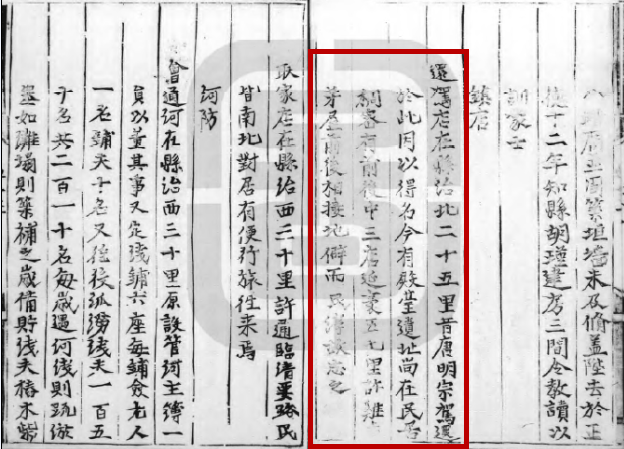 築垣墻未及脩蓋陞去於正
德十二年知縣胡瑾建房三間令教讀以
訓家士
鎮店
還駕店在縣治北二十五里昔唐明宗駕還
於此因以得名今有殿堂遺址尚在民居
稠密有前後中三店延袤五七里許雖
茅屋前後相接地僻而民淳故志之
耿家店在縣治西三十里許通臨清要路民
皆南北對居有便行旅往來焉
河防
會通河在縣治西三十里原設管河主簿一
員以董其事又定淺鋪六座每鋪僉老人
一名鋪夫十名又徭役派撈淺夫一百五
十名共二百一十名每歲遇河淺則疏濬
如灘塌則築補之歲備貯淺夫樁木柴